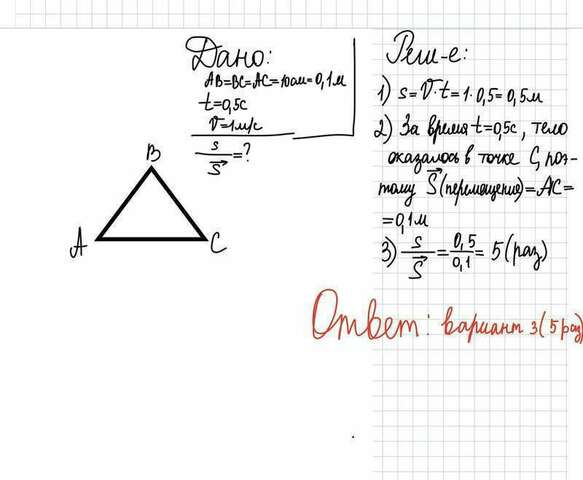 Дано:
AB=BC=AC=10см=0,1м
t=0,5с
V=1м/с
s/S⃗=?
B
A
C
Реш-е:
1) s=V·t=1·0,5=0,5м
2) За время t=0,5с, тело
оказалось в точке C, поэ-
тому S⃗(перемещение)=AC=
=0,1м
3) s/S⃗=0,5/0,1=5(раз)
Ответ: вариант 3(5 раз)